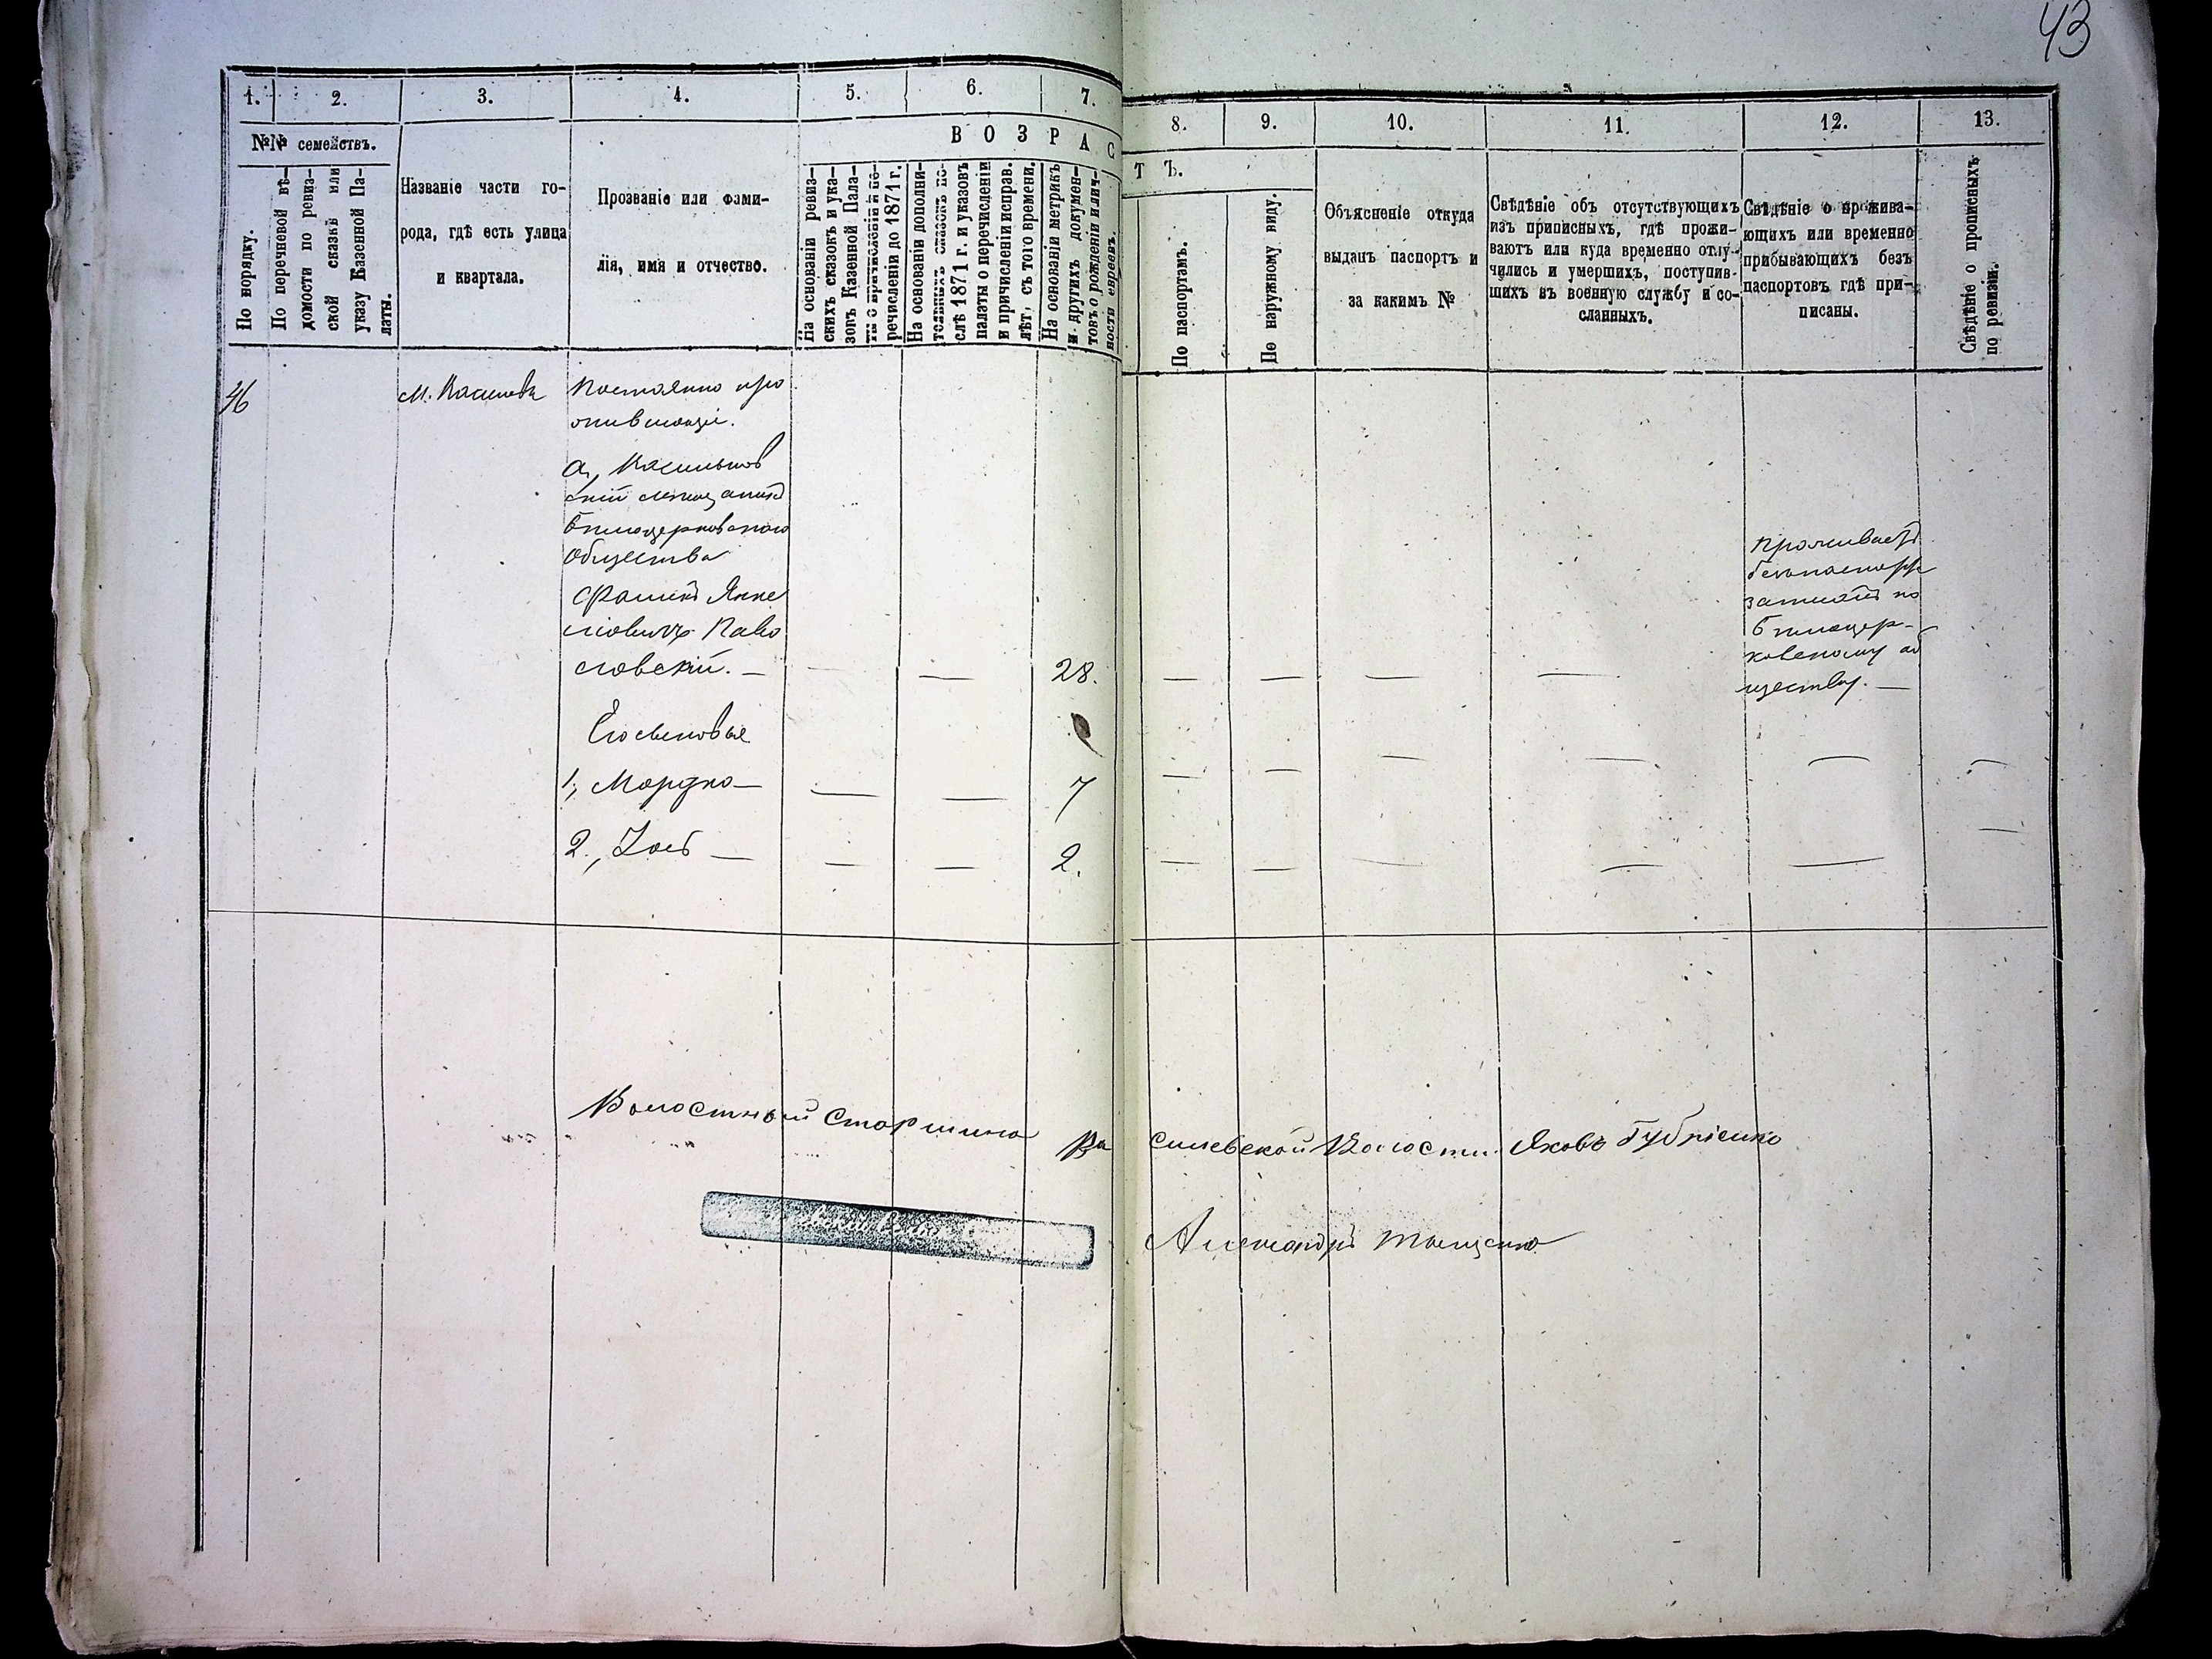 43
1.
2.
3.
4.
5.
6.
7.
8.
9.
10.
11.
12.
13.
№№ семействъ.
В О З Р А С
Т Ъ.
По порядку.
По перечневой вѣ-
домости по ревиз-
ской сказкѣ или
указу Казенной Па-
латы.
Названіе части го-
рода, гдѣ есть улица
и квартала.
Прозваніе или фами-
лія, имя и отчество.
На основаніи ревиз-
скихъ сказокъ и ука-
зовъ Казенной Пала-
ты о причисленіи и пе-
речисленіи до 1871 г.
На основаніи дополни-
тельныхъ сказокъ по-
слѣ 1871 г. и указовъ
палаты о перечисленіи
и причисленіи исправ.
лѣт. съ того времени.
На основаніи метрикъ
и другихъ докумен-
товъ о рожденіи и лич-
ности евреевъ.
По паспортамъ.
По наружному виду.
Объясненіе откуда
выданъ паспортъ и
за какимъ №
Свѣдѣніе объ отсутствующихъ
изъ приписныхъ, гдѣ прожи-
ваютъ или куда временно отлу-
чились и умершихъ, поступив-
шихъ въ военную службу и со-
сланныхъ.
Свѣдѣніе о прожива-
ющихъ или временно
прибывающихъ безъ
паспортовъ гдѣ при-
писаны.
Свѣдѣніе о прописныхъ
по ревизіи.
46
М. Василевъ
Постоянно про
живающіе.
а, Васильков
скій мѣщанинъ
бѣлоцерковскаго
Общества
Янке
левичъ
словскій. — — — 28. — — — —
Проживаетъ
безъ паспорта
записанъ по
бѣлоцер-
ковскому об
ществу. —
Его сыновья
1, Мордко — — — 7 — — — — — —
2, — — — 2. — — — — — —
Волостный Старшина Ва силевской Волости Яковъ Губріенко
Александръ Тыщенко